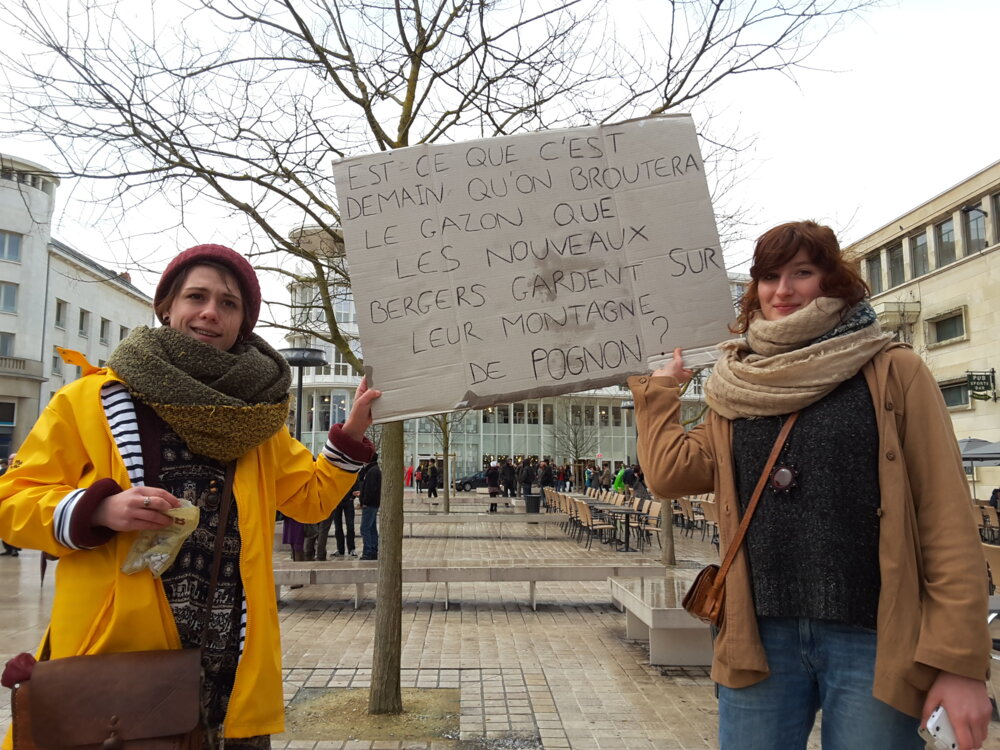 EST-CE QUE C'EST
DEMAIN QU'ON BROUTERA
LE GAZON QUE
LES NOUVEAUX
BERGERS GARDENT SUR
LEUR MONTAGNE
DE POGNON ?
PUB